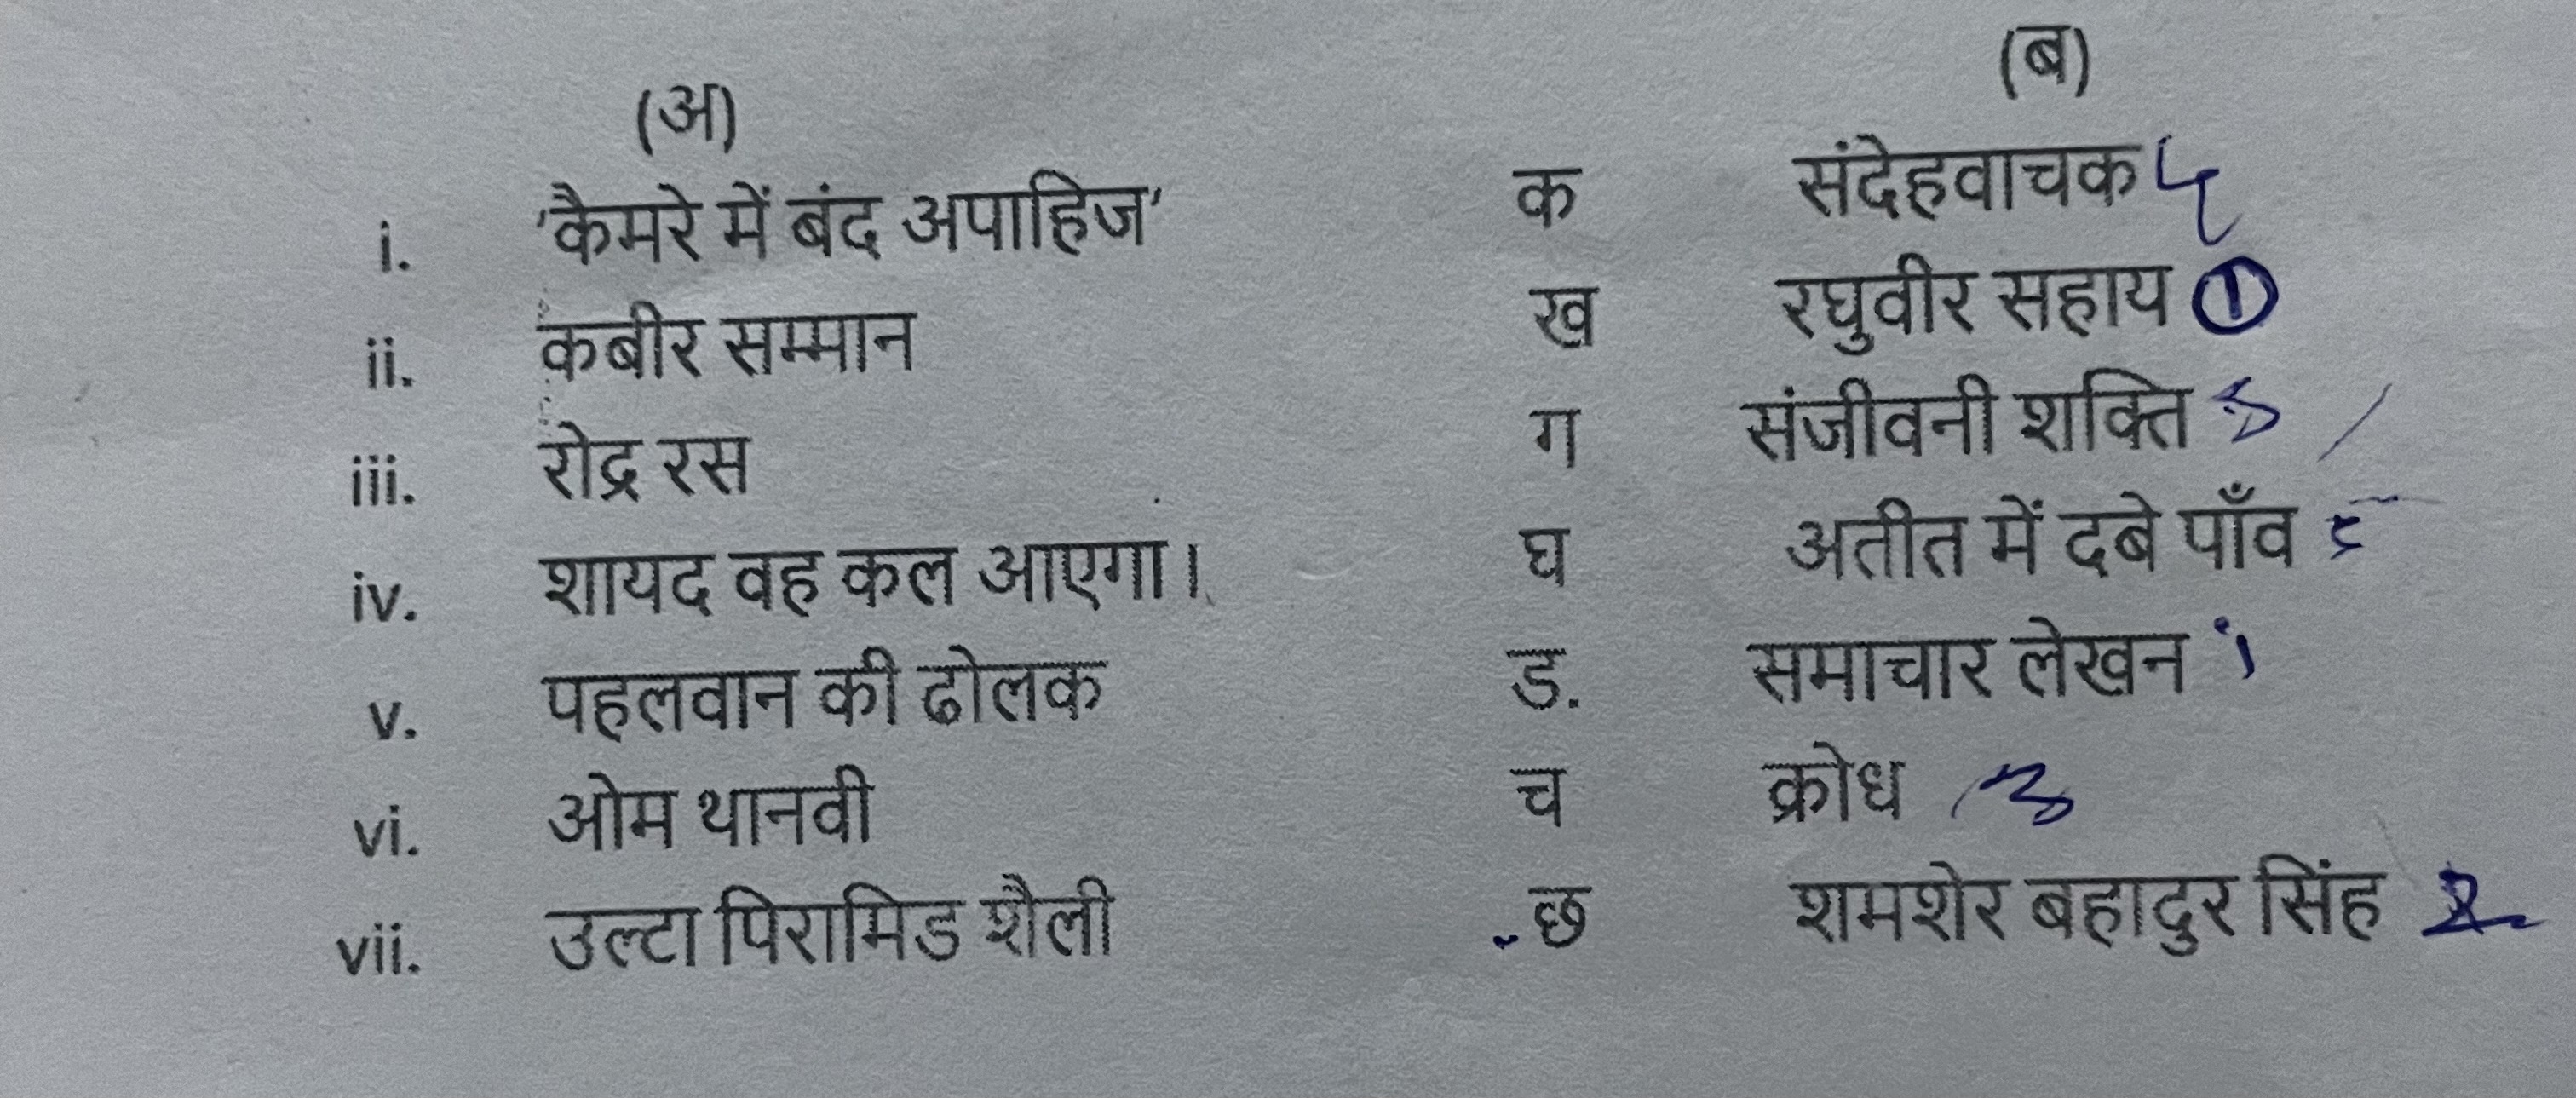 (अ) (ब)
i. 'कैमरे में बंद अपाहिज' क संदेहवाचक
ii. कबीर सम्मान ख रघुवीर सहाय ①
iii. रोद्र रस ग संजीवनी शक्ति
iv. शायद वह कल आएगा। घ अतीत में दबे पाँव
v. पहलवान की ढोलक ड. समाचार लेखन
vi. ओम थानवी च क्रोध 3
vii. उल्टा पिरामिड शैली छ शमशेर बहादुर सिंह 2